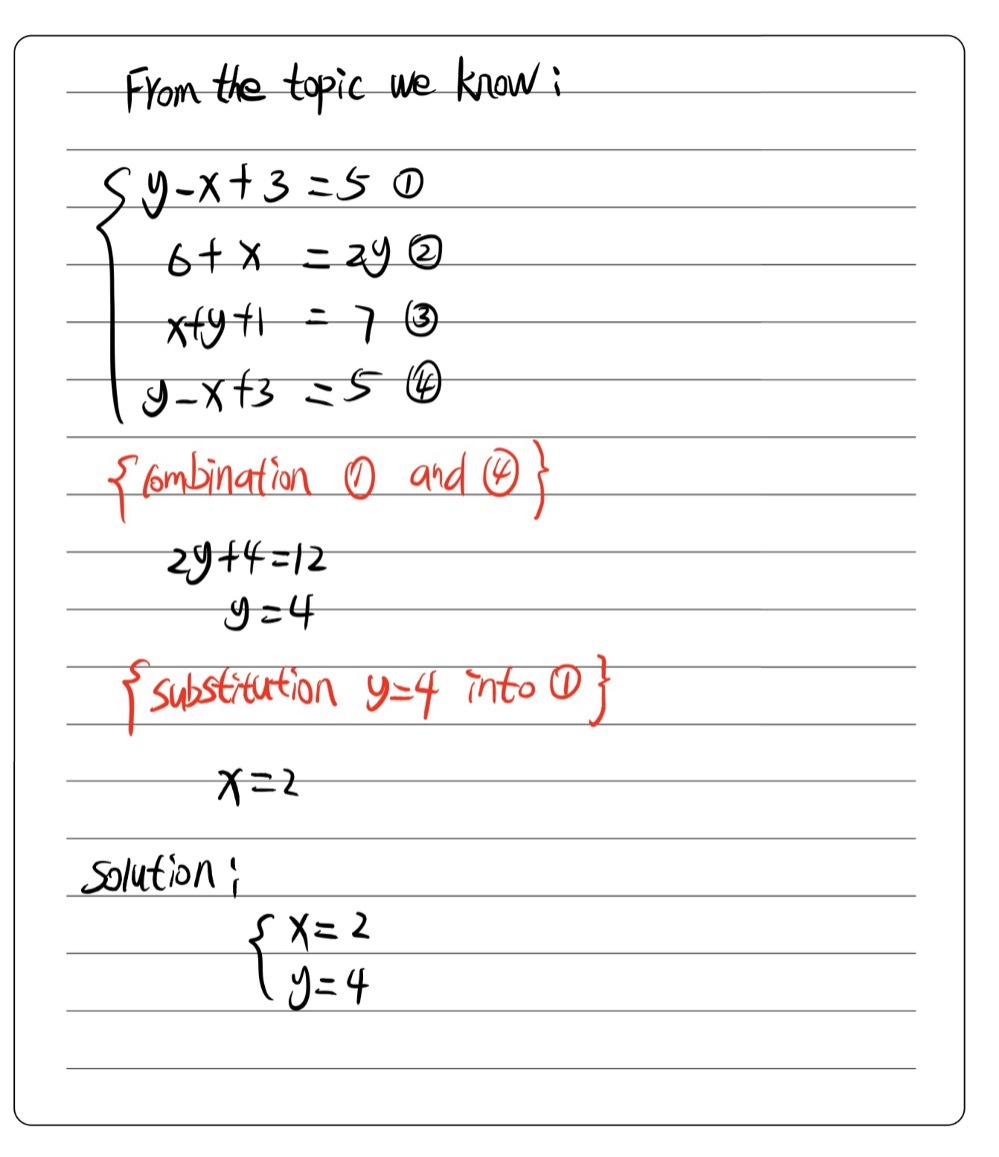 From the topic we know:
y-x+3=5 ①
6+x=2y ②
x+y+1=7 ③
y-x+3=5 ④
{Combination ① and ④}
2y+4=12
y=4
{substitution y=4 into ①}
x=2
Solution:
x=2
y=4